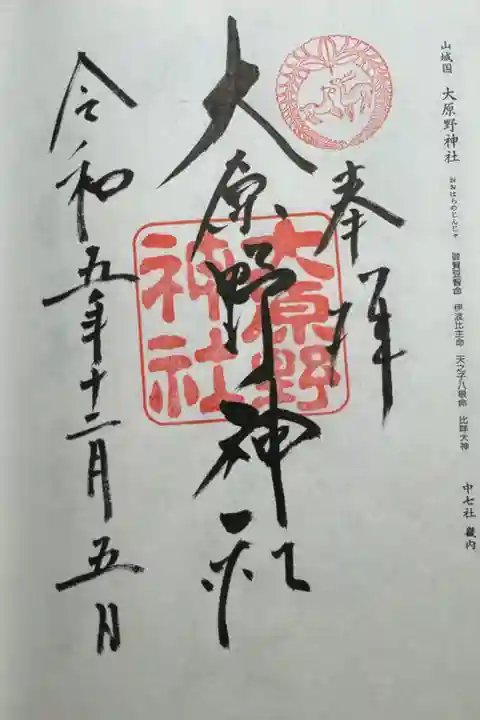 山城国 大原野神社
おおはらのじんじゃ
御賀豆智命 伊波比主命 天之子八根命 比咩大神
中七社 畿内
奉拝
大原野神社
大原野
神社
令和五年十二月五日